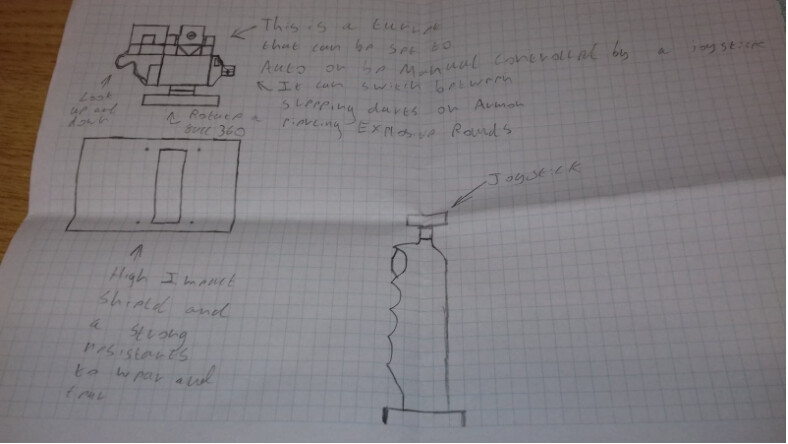 This is a turret
that can be set to
Auto or be Manual controlled by a Joystick
It can switch between
sleeping darts or Armor
piercing Explosive Rounds
Look
up and
down
Rotate a
full 360
Joystick
High Impact
Shield and
a strong
resistants
to wear and
tear